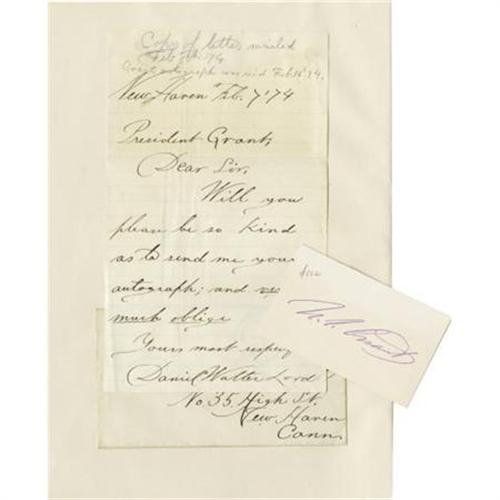 Copy of letter mailed
Feb 7th 74
Grant autograph received Feb 14, 74.
New Haven Feb. 7 '74
President Grant,
Dear Sir,
Will you
please be so kind
as to send me your
autograph; and
much oblige
Yours most respec
Daniel Walter Lord
No. 35. High St.
New Haven
Conn.
U. S. Grant